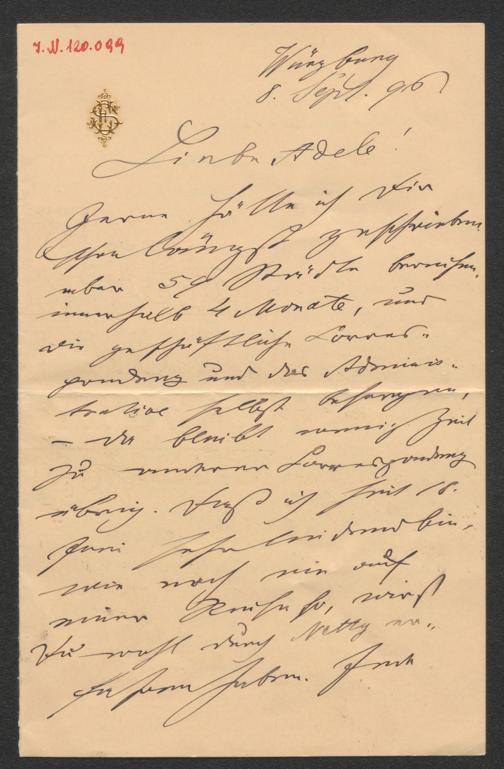 I.N. 120.099
Würzburg
8. Sept. 96
Liebe Adele!
Gerne hätte ich Dir
schon längst geschrieben,
aber 59 Städte bereisen,
innerhalb 4 Monate, und
die geschäftliche Corres-
pondenz und das Adminis-
trative selbst besorgen,
– da bleibt wenig Zeit
zu anderer Correspondenz
übrig. Daß ich seit 18.
Juni sehr leidend bin,
wie noch nie auf
einer Reise so, wirst
Du wohl durch Netty er-
fahren haben.